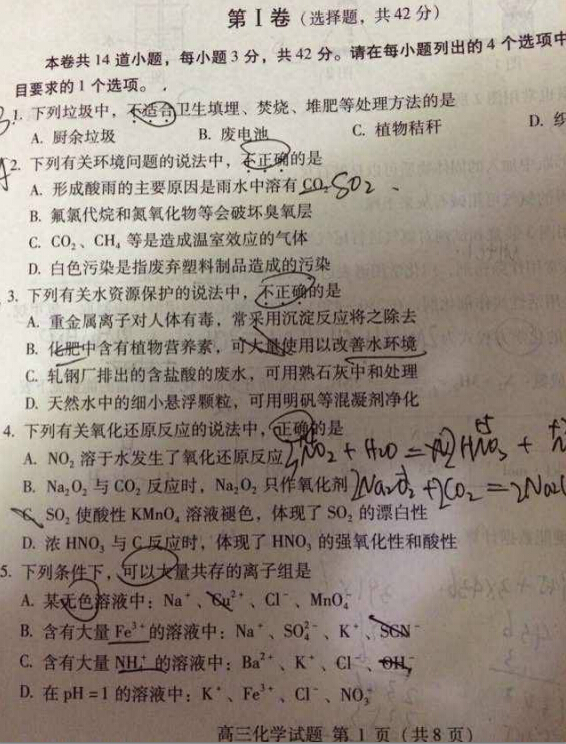 第Ⅰ卷（选择题，共42分）
本卷共14道小题，每小题3分，共42分。请在每小题列出的4个选项中
目要求的1个选项。
1. 下列垃圾中，不适合卫生填埋、焚烧、堆肥等处理方法的是
A. 厨余垃圾 B. 废电池 C. 植物秸秆 D.
2. 下列有关环境问题的说法中，不正确的是
A. 形成酸雨的主要原因是雨水中溶有CO₂ SO₂
B. 氟氯代烷和氮氧化物等会破坏臭氧层
C. CO₂、CH₄ 等是造成温室效应的气体
D. 白色污染是指废弃塑料制品造成的污染
3. 下列有关水资源保护的说法中，不正确的是
A. 重金属离子对人体有毒，常采用沉淀反应将之除去
B. 化肥中含有植物营养素，可大量使用以改善水环境
C. 轧钢厂排出的含盐酸的废水，可用熟石灰中和处理
D. 天然水中的细小悬浮颗粒，可用明矾等混凝剂净化
4. 下列有关氧化还原反应的说法中，正确的是
A. NO₂ 溶于水发生了氧化还原反应 3NO₂ + H₂O = 2HNO₃ +
B. Na₂O₂ 与 CO₂ 反应时，Na₂O₂ 只作氧化剂 2Na₂O₂ + 2CO₂ = 2Na₂C
C. SO₂ 使酸性 KMnO₄ 溶液褪色，体现了 SO₂ 的漂白性
D. 浓 HNO₃ 与 C 反应时，体现了 HNO₃ 的强氧化性和酸性
5. 下列条件下，可以大量共存的离子组是
A. 某无色溶液中：Na⁺、Cu²⁺、Cl⁻、MnO₄⁻
B. 含有大量 Fe³⁺ 的溶液中：Na⁺、SO₄²⁻、K⁺、SCN⁻
C. 含有大量 NH₄⁺ 的溶液中：Ba²⁺、K⁺、Cl⁻、OH⁻
D. 在 pH = 1 的溶液中：K⁺、Fe³⁺、Cl⁻、NO₃⁻
高三化学试题 第 1 页（共 8 页）